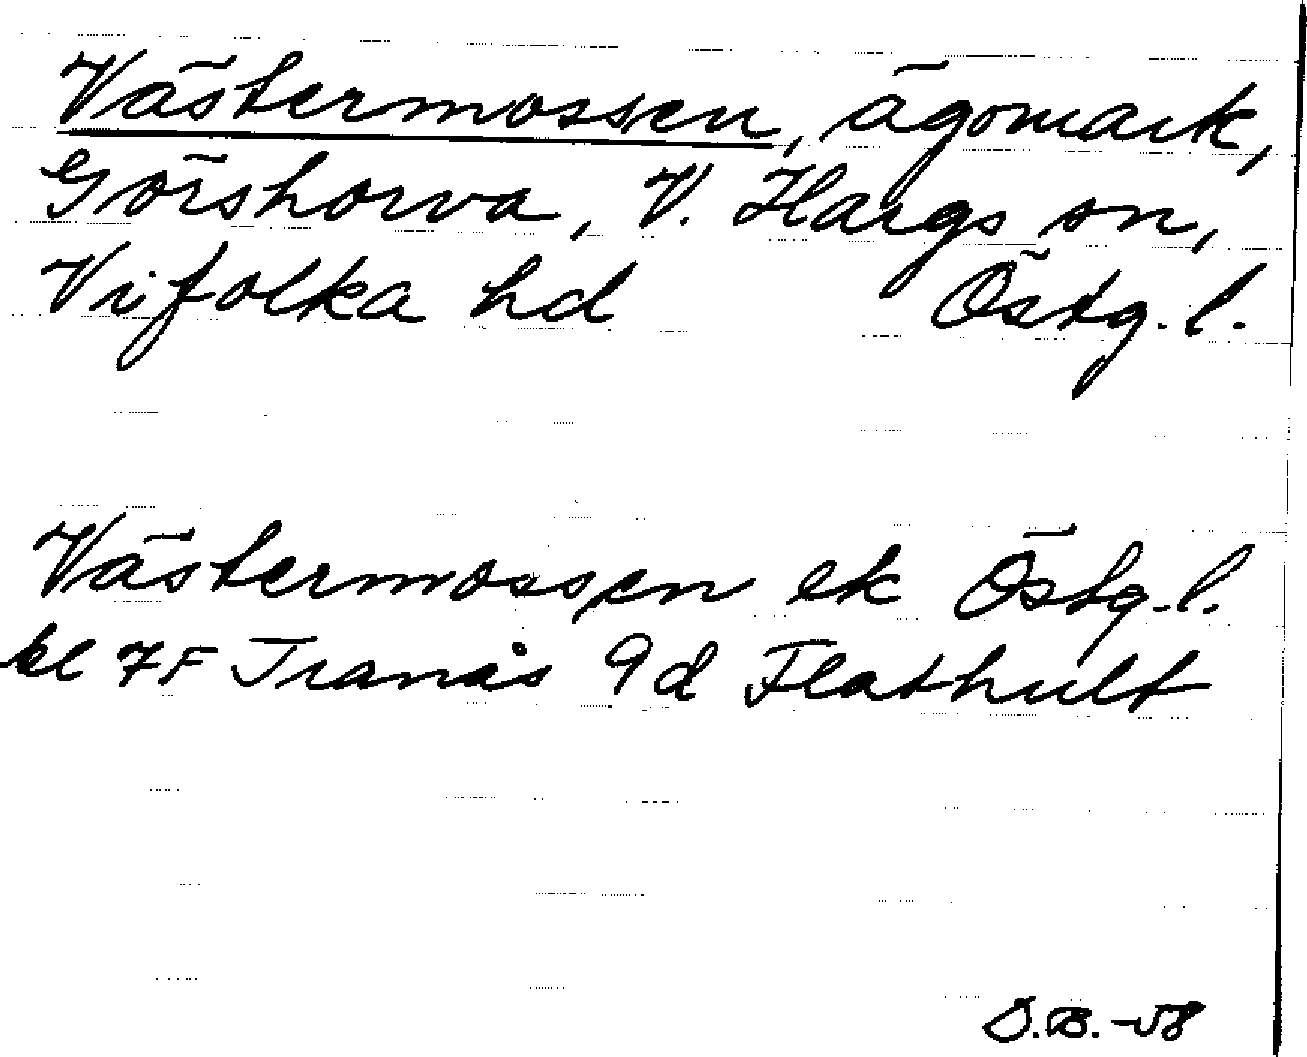 Västermossen, ägomark,
Görshorva, V. Hargs sn,
Vifolka hd Östg. l.
Västermossen ek Östg. l.
bl 7F Tranås 9d Flathult
O.B. -58